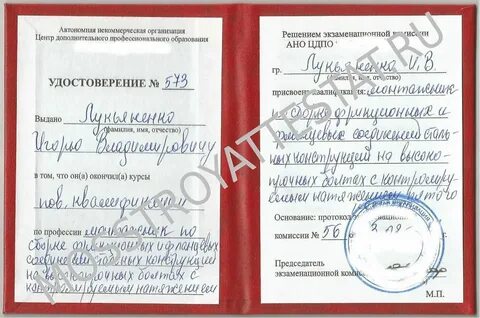 Автономная некоммерческая организация
Центр дополнительного профессионального образования
УДОСТОВЕРЕНИЕ № 573
Выдано Лукьяненко
(фамилия, имя, отчество)
Игорю Владимировичу
в том, что он(а) окончил(а) курсы
пов. квалификации
по профессии монтажник по
сборке фрикционных и фланцевых
соединений стальных конструкций
на высокопрочных болтах с
контролируемым натяжением
Решением экзаменационной комиссии
АНО ЦДПО
гр. Лукьяненко И. В.
(фамилия, имя, отчество)
присвоена квалификация: монтажник
по сборке фрикционных и
фланцевых соединений сталь-
ных конструкций на высоко-
прочных болтах с контролиру-
емым натяжением пятого
Основание: протокол
комиссии № 56
Председатель
экзаменационной
М.П.
MOSSTROYATTESTAT.RU